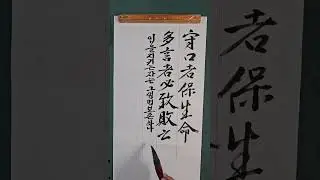 守口者保生命
多言者必致敗亡
입을지키는자는 그생명을보존하나
者保生